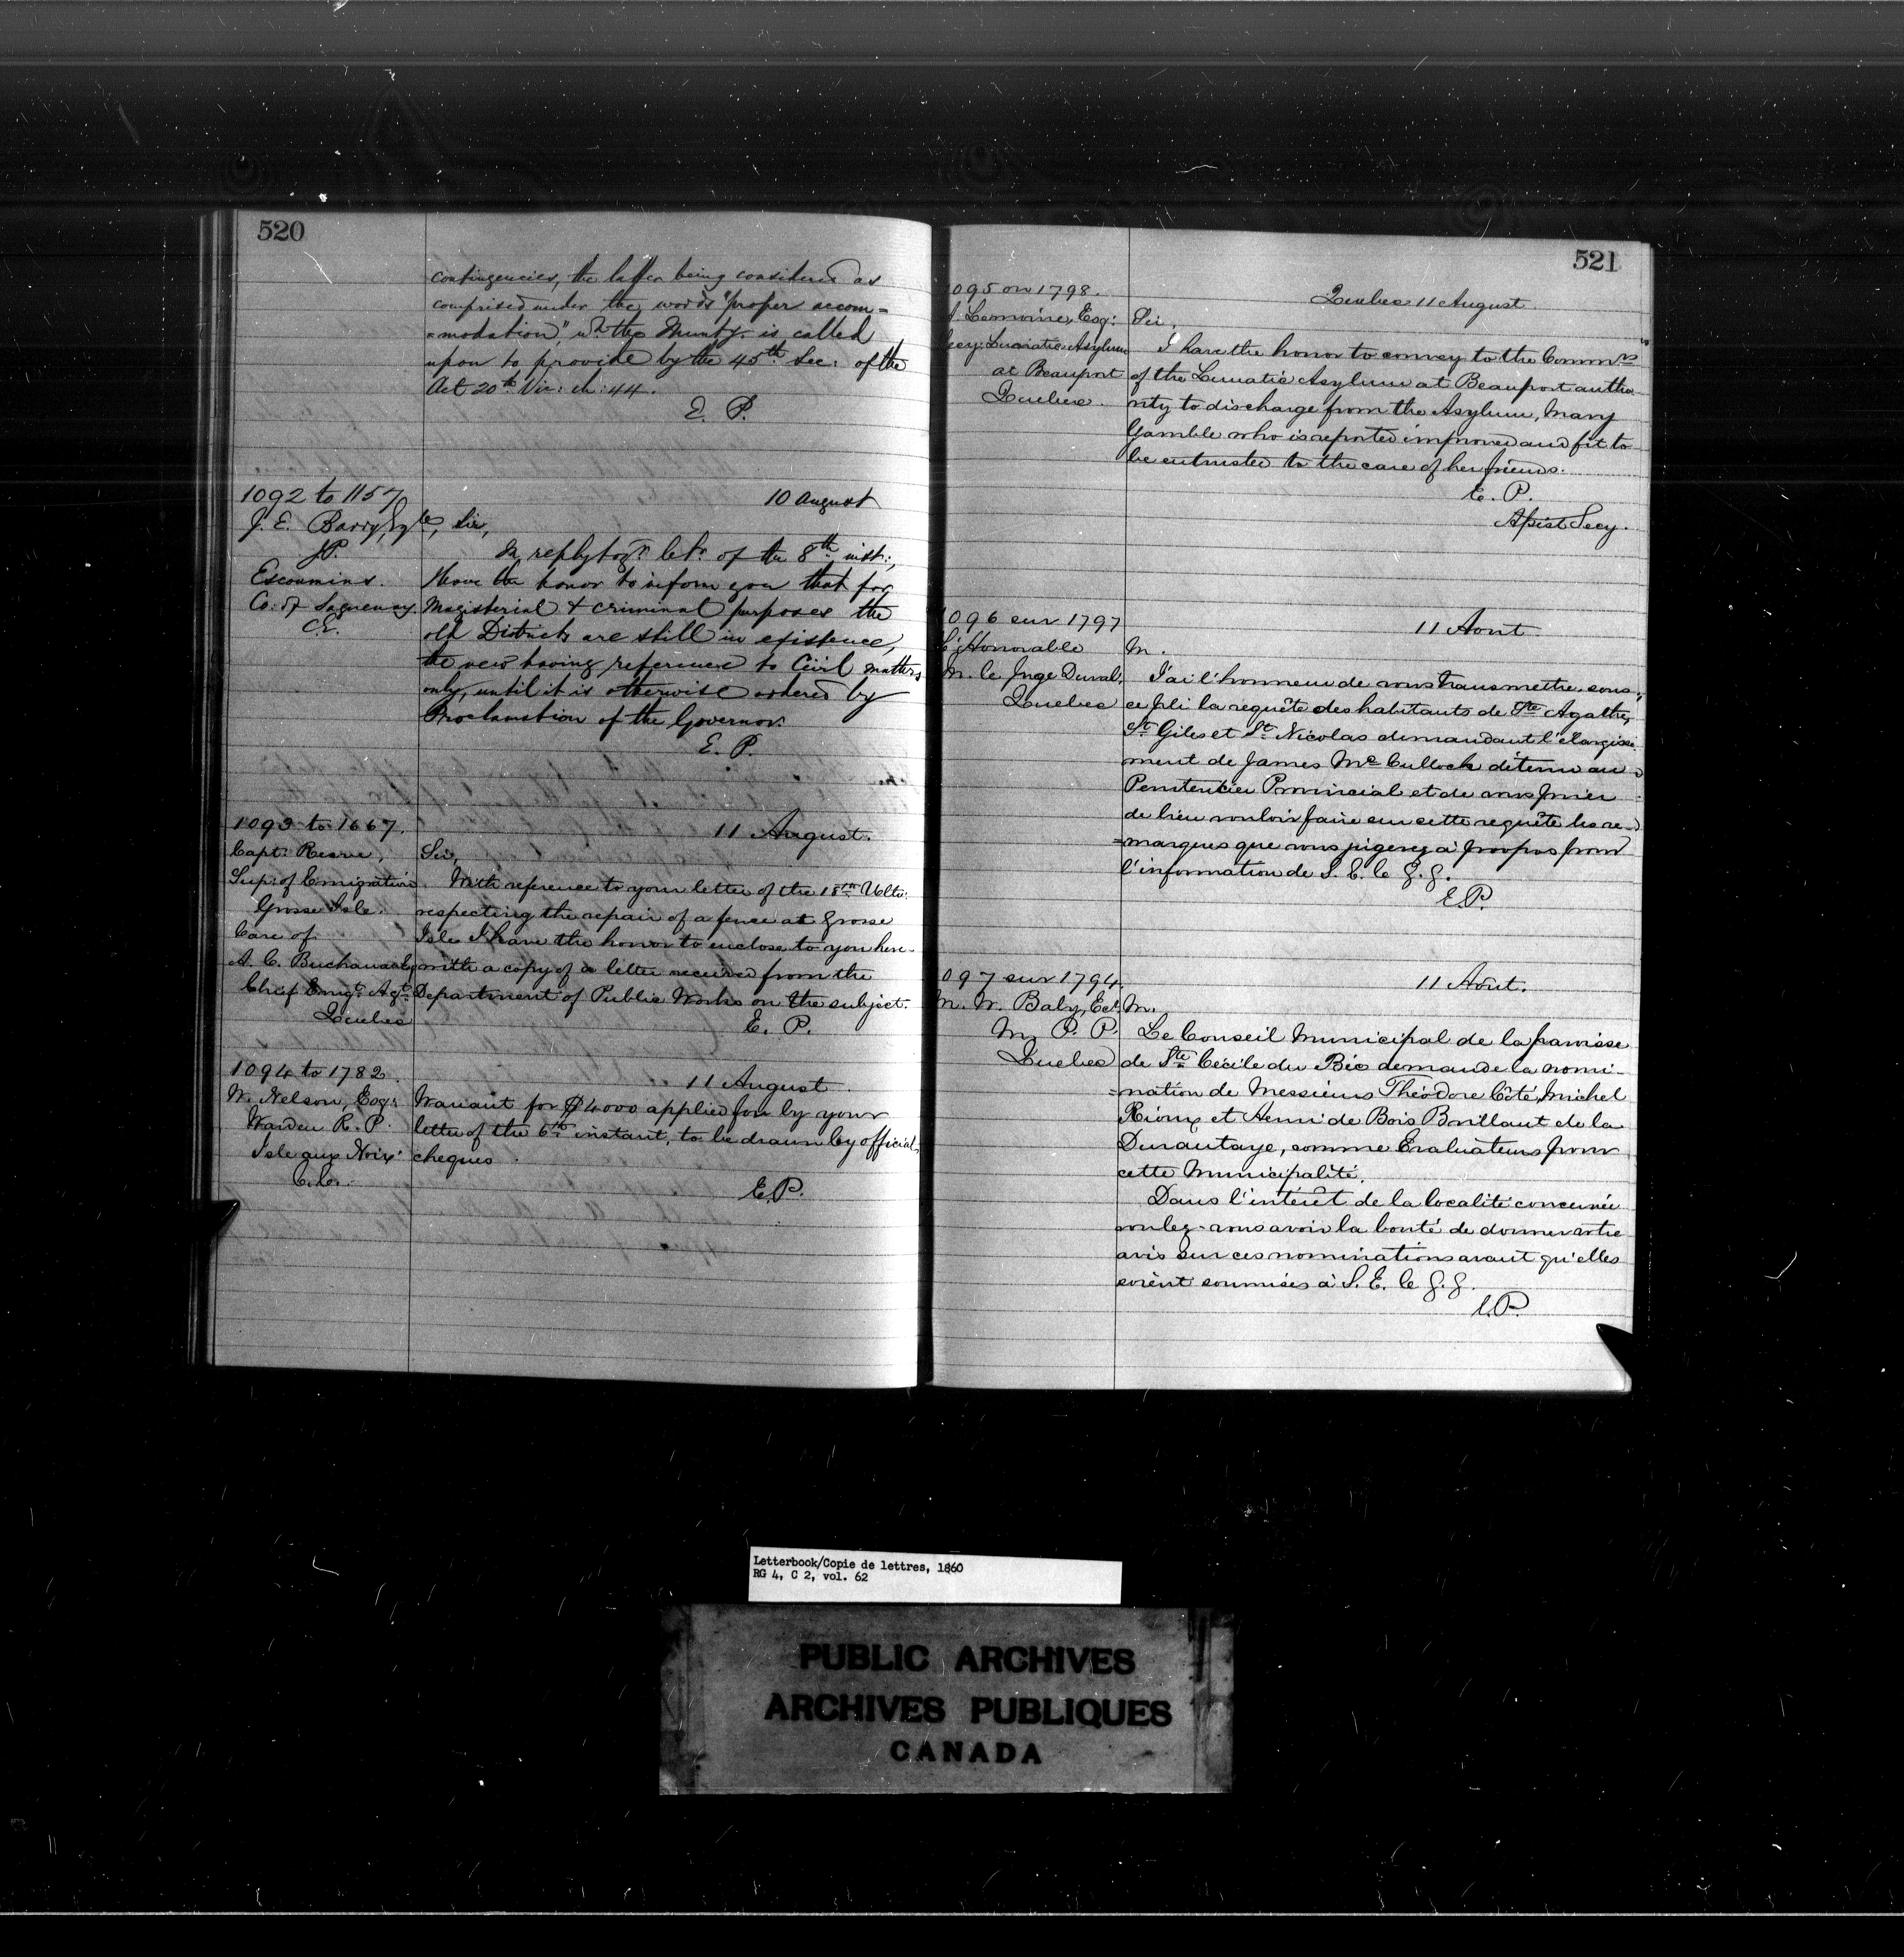 520
contingencies, the latter being considered as
comprised under the words "proper accom=
=modation," wh. the Munty. is called
upon to provide by the 45th Sec: of the
Act 20th Vic: ch: 44.
E. P.
1092 to 1157
10 August
J. E. Barry, Esqre,
J.P.
Escoumins.
Co: of Saguenay.
C.E.
Sir,
In reply to yr. let. of the 8th inst:,
I have the honor to inform you that for
Magisterial & criminal purposes the
old Districts are still in existence,
the new having reference to Civil matters
only, until it is otherwise ordered by
Proclamation of the Governor.
E. P.
1093 to 1667.
11 August.
Capt: Reeve,
Sup: of Emigration
Grosse Isle.
Care of
A. C. Buchanan Esq
Chief Emigt. Agt.
Quebec
Sir,
With reference to your letter of the 18th Ulto:
respecting the repair of a fence at Grosse
Isle I have the honor to enclose to you here-
with a copy of a letter received from the
Department of Public Works on the subject.
E. P.
1094 to 1782.
11 August.
W. Nelson, Esq:
Warden R. P.
Isle aux Noix
C.E.
Warrant for $4000 applied for by your
letter of the 6th instant, to be drawn by official
cheques.
E.P.
521
095 on 1798.
Quebec 11 August.
Lemoine, Esq:
ecy: Lunatic Asylum
at Beauport
Quebec.
Sir,
I have the honor to convey to the Commrs
of the Lunatic Asylum at Beauport autho
rity to discharge from the Asylum, Mary
Gamble who is reported improved and fit to
be entrusted to the care of her friends.
E. P.
Assist Secy.
096 sur 1797
11 Aout.
L'Honorable
M. le Juge Duval,
Quebec
M.
J'ai l'honneur de vous transmettre sous
ce pli la requête des habitants de Ste Agathe,
St. Giles et St. Nicolas demandant l'élargisse
ment de James McCullock détenu au
Penitencier Provincial et de vous prier
de bien vouloir faire sur cette requête les re=
=marques que vous jugerez à propos pour
l'information de S. E. le G. G.
E.P.
097 sur 1794.
11 Aout.
M. W. Baby, Ecr.
M. P. P.
Quebec
M.
Le Conseil Municipal de la paroisse
de Ste Cécile du Bic demande la nomi-
=nation de Messieurs Théodore Côté, Michel
Rioux et Henri de Bois Brillant de la
Durantaye, comme Evaluateurs pour
cette Municipalité.
Dans l'intérêt de la localité concernée
voulez-vous avoir la bonté de donner votre
avis sur ces nominations avant qu'elles
soient soumises à S. E. le G. G.
E.P.
Letterbook/Copie de lettres, 1860
RG 4, C 2, vol. 62
PUBLIC ARCHIVES
ARCHIVES PUBLIQUES
CANADA